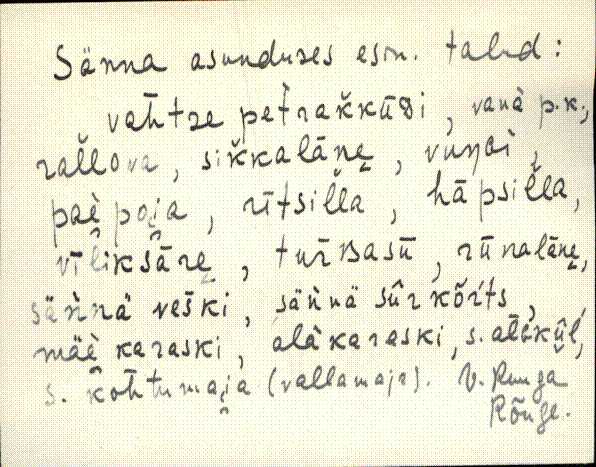 Sänna asunduses esin. talud:
vaht̀se pet̀rakküBi, vanà p.k.,
rallova, sikkalāne, vuŋ̀ɢi,
paè poja, rītsilla, hāpsilla,
vīliksāre, tuřBasū, rūnalāne,
säǹnä veški, säǹnä sûrkõŕts,
mäè karaski, alàkaraski, s. alàkûl,
s. kohtumaja (vallamaja). V. Ruuga
Rõuge.